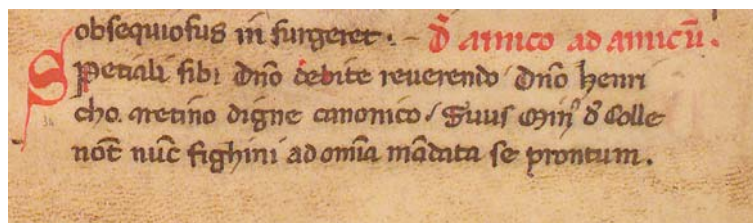 obsequiosus in surgeret. – D̄ amico ad amicū.
Spetiali sibi dn̄o debite reuerendo / dn̄o henri
cho. aretino digne canonico / Suus Min⁹ d̄ Colle
not̄ nūc fighini ad om̄ia mādata se prontum.